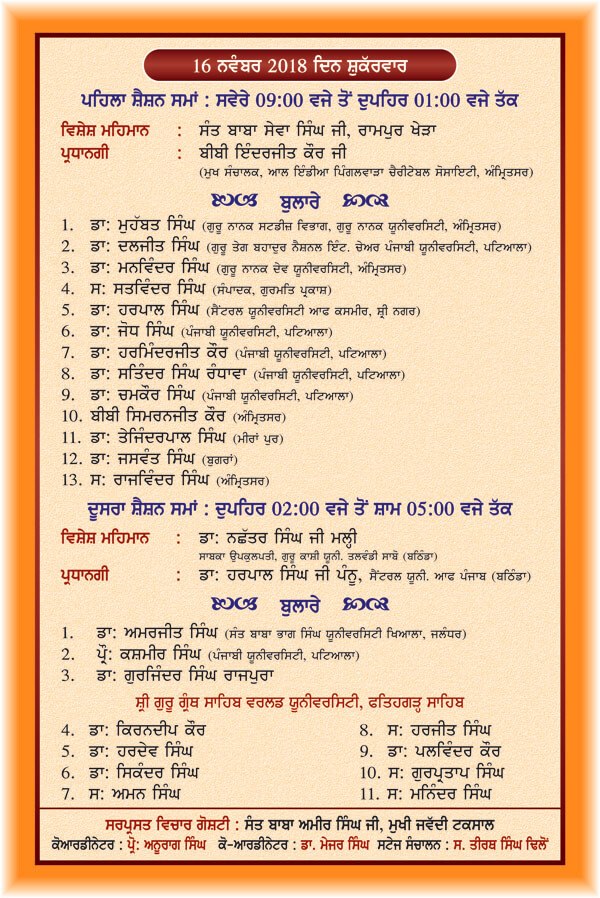 16 ਨਵੰਬਰ 2018 ਦਿਨ ਸ਼ੁਕੱਰਵਾਰ
ਪਹਿਲਾ ਸ਼ੈਸ਼ਨ ਸਮਾਂ : ਸਵੇਰੇ 09:00 ਵਜੇ ਤੋਂ ਦੁਪਹਿਰ 01:00 ਵਜੇ ਤੱਕ
ਵਿਸ਼ੇਸ਼ ਮਹਿਮਾਨ : ਸੰਤ ਬਾਬਾ ਸੇਵਾ ਸਿੰਘ ਜੀ, ਰਾਮਪੁਰ ਖੇੜਾ
ਪ੍ਰਧਾਨਗੀ : ਬੀਬੀ ਇੰਦਰਜੀਤ ਕੌਰ ਜੀ
(ਮੁਖ ਸੰਚਾਲਕ, ਆਲ ਇੰਡੀਆ ਪਿੰਗਲਵਾੜਾ ਚੈਰੀਟੇਬਲ ਸੋਸਾਇਟੀ, ਅੰਮ੍ਰਿਤਸਰ)
ਬੁਲਾਰੇ
1. ਡਾ: ਮੁਹੱਬਤ ਸਿੰਘ (ਗੁਰੂ ਨਾਨਕ ਸਟਡੀਜ਼ ਵਿਭਾਗ, ਗੁਰੂ ਨਾਨਕ ਯੂਨੀਵਰਸਿਟੀ, ਅੰਮ੍ਰਿਤਸਰ)
2. ਡਾ: ਦਲਜੀਤ ਸਿੰਘ (ਗੁਰੂ ਤੇਗ ਬਹਾਦੁਰ ਨੈਸ਼ਨਲ ਇੰਟ. ਚੇਅਰ ਪੰਜਾਬੀ ਯੂਨੀਵਰਸਿਟੀ, ਪਟਿਆਲਾ)
3. ਡਾ: ਮਨਵਿੰਦਰ ਸਿੰਘ (ਗੁਰੂ ਨਾਨਕ ਦੇਵ ਯੂਨੀਵਰਸਿਟੀ, ਅੰਮ੍ਰਿਤਸਰ)
4. ਸ: ਸਤਵਿੰਦਰ ਸਿੰਘ (ਸੰਪਾਦਕ, ਗੁਰਮਤਿ ਪ੍ਰਕਾਸ਼)
5. ਡਾ: ਹਰਪਾਲ ਸਿੰਘ (ਸੈਂਟਰਲ ਯੂਨੀਵਰਸਿਟੀ ਆਫ ਕਸਮੀਰ, ਸ਼੍ਰੀ ਨਗਰ)
6. ਡਾ: ਜੋਧ ਸਿੰਘ (ਪੰਜਾਬੀ ਯੂਨੀਵਰਸਿਟੀ, ਪਟਿਆਲਾ)
7. ਡਾ: ਹਰਮਿੰਦਰਜੀਤ ਕੌਰ (ਪੰਜਾਬੀ ਯੂਨੀਵਰਸਿਟੀ, ਪਟਿਆਲਾ)
8. ਡਾ: ਸਤਿੰਦਰ ਸਿੰਘ ਰੰਧਾਵਾ (ਪੰਜਾਬੀ ਯੂਨੀਵਰਸਿਟੀ, ਪਟਿਆਲਾ)
9. ਡਾ: ਚਮਕੌਰ ਸਿੰਘ (ਪੰਜਾਬੀ ਯੂਨੀਵਰਸਿਟੀ, ਪਟਿਆਲਾ)
10. ਬੀਬੀ ਸਿਮਰਨਜੀਤ ਕੌਰ (ਅੰਮ੍ਰਿਤਸਰ)
11. ਡਾ: ਤੇਜਿੰਦਰਪਾਲ ਸਿੰਘ (ਮੀਰਾਂ ਪੁਰ)
12. ਡਾ: ਜਸਵੰਤ ਸਿੰਘ (ਬੁਗਰਾਂ)
13. ਸ: ਰਾਜਵਿੰਦਰ ਸਿੰਘ (ਅੰਮ੍ਰਿਤਸਰ)
ਦੂਸਰਾ ਸ਼ੈਸ਼ਨ ਸਮਾਂ : ਦੁਪਹਿਰ 02:00 ਵਜੇ ਤੋਂ ਸ਼ਾਮ 05:00 ਵਜੇ ਤੱਕ
ਵਿਸ਼ੇਸ਼ ਮਹਿਮਾਨ : ਡਾ: ਨਛੱਤਰ ਸਿੰਘ ਜੀ ਮਲ੍ਹੀ
ਸਾਬਕਾ ਉਪਕੁਲਪਤੀ, ਗੁਰੂ ਕਾਸ਼ੀ ਯੂਨੀ. ਤਲਵੰਡੀ ਸਾਬੋ (ਬਠਿੰਡਾ)
ਪ੍ਰਧਾਨਗੀ : ਡਾ: ਹਰਪਾਲ ਸਿੰਘ ਜੀ ਪੰਨੂ, ਸੈਂਟਰਲ ਯੂਨੀ. ਆਫ ਪੰਜਾਬ (ਬਠਿੰਡਾ)
ਬੁਲਾਰੇ
1. ਡਾ: ਅਮਰਜੀਤ ਸਿੰਘ (ਸੰਤ ਬਾਬਾ ਭਾਗ ਸਿੰਘ ਯੂਨੀਵਰਸਿਟੀ ਖਿਆਲਾ, ਜਲੰਧਰ)
2. ਪ੍ਰੋ: ਕਸ਼ਮੀਰ ਸਿੰਘ (ਪੰਜਾਬੀ ਯੂਨੀਵਰਸਿਟੀ, ਪਟਿਆਲਾ)
3. ਡਾ: ਗੁਰਜਿੰਦਰ ਸਿੰਘ ਰਾਜਪੁਰਾ
ਸ਼੍ਰੀ ਗੁਰੂ ਗ੍ਰੰਥ ਸਾਹਿਬ ਵਰਲਡ ਯੂਨੀਵਰਸਿਟੀ, ਫਤਿਹਗੜ੍ਹ ਸਾਹਿਬ
4. ਡਾ: ਕਿਰਨਦੀਪ ਕੌਰ
5. ਡਾ: ਹਰਦੇਵ ਸਿੰਘ
6. ਡਾ: ਸਿਕੰਦਰ ਸਿੰਘ
7. ਸ: ਅਮਨ ਸਿੰਘ
8. ਸ: ਹਰਜੀਤ ਸਿੰਘ
9. ਡਾ: ਪਲਵਿੰਦਰ ਕੌਰ
10. ਸ: ਗੁਰਪ੍ਰਤਾਪ ਸਿੰਘ
11. ਸ: ਮਨਿੰਦਰ ਸਿੰਘ
ਸਰਪ੍ਰਸਤ ਵਿਚਾਰ ਗੋਸ਼ਟੀ : ਸੰਤ ਬਾਬਾ ਅਮੀਰ ਸਿੰਘ ਜੀ, ਮੁਖੀ ਜਵੱਦੀ ਟਕਸਾਲ
ਕੋਆਰਡੀਨੇਟਰ : ਪ੍ਰੋ: ਅਨੂਰਾਗ ਸਿੰਘ ਕੋ-ਆਰਡੀਨੇਟਰ : ਡਾ. ਮੇਜਰ ਸਿੰਘ ਸਟੇਜ ਸੰਚਾਲਨ : ਸ. ਤੀਰਥ ਸਿੰਘ ਢਿਲੋਂ